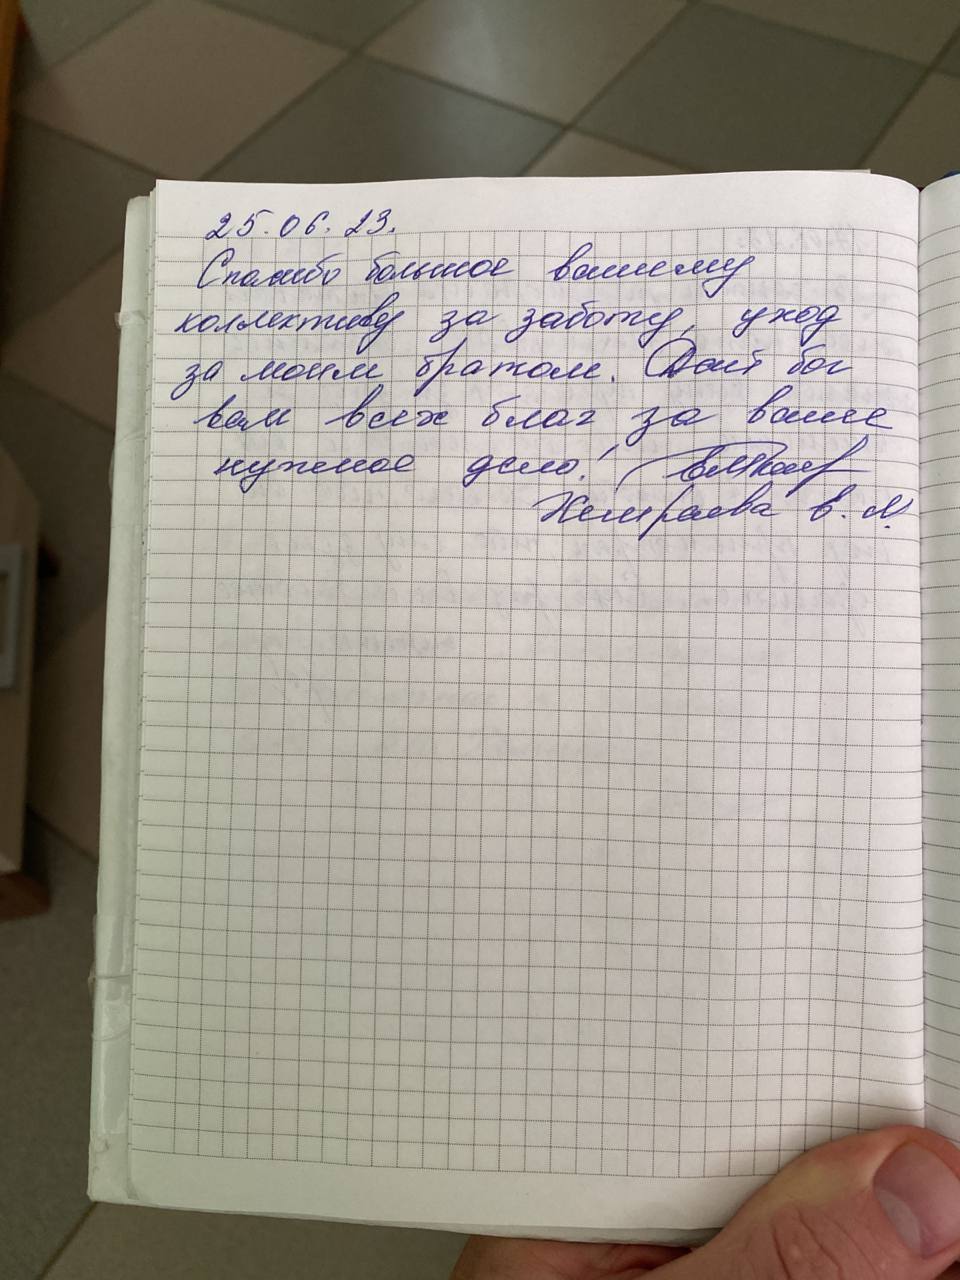 25.06.23.
Спасибо большое вашему
коллективу за заботу, уход
за моим братом. Дай бог
вам всех благ за ваше
нужное дело!
в. м.